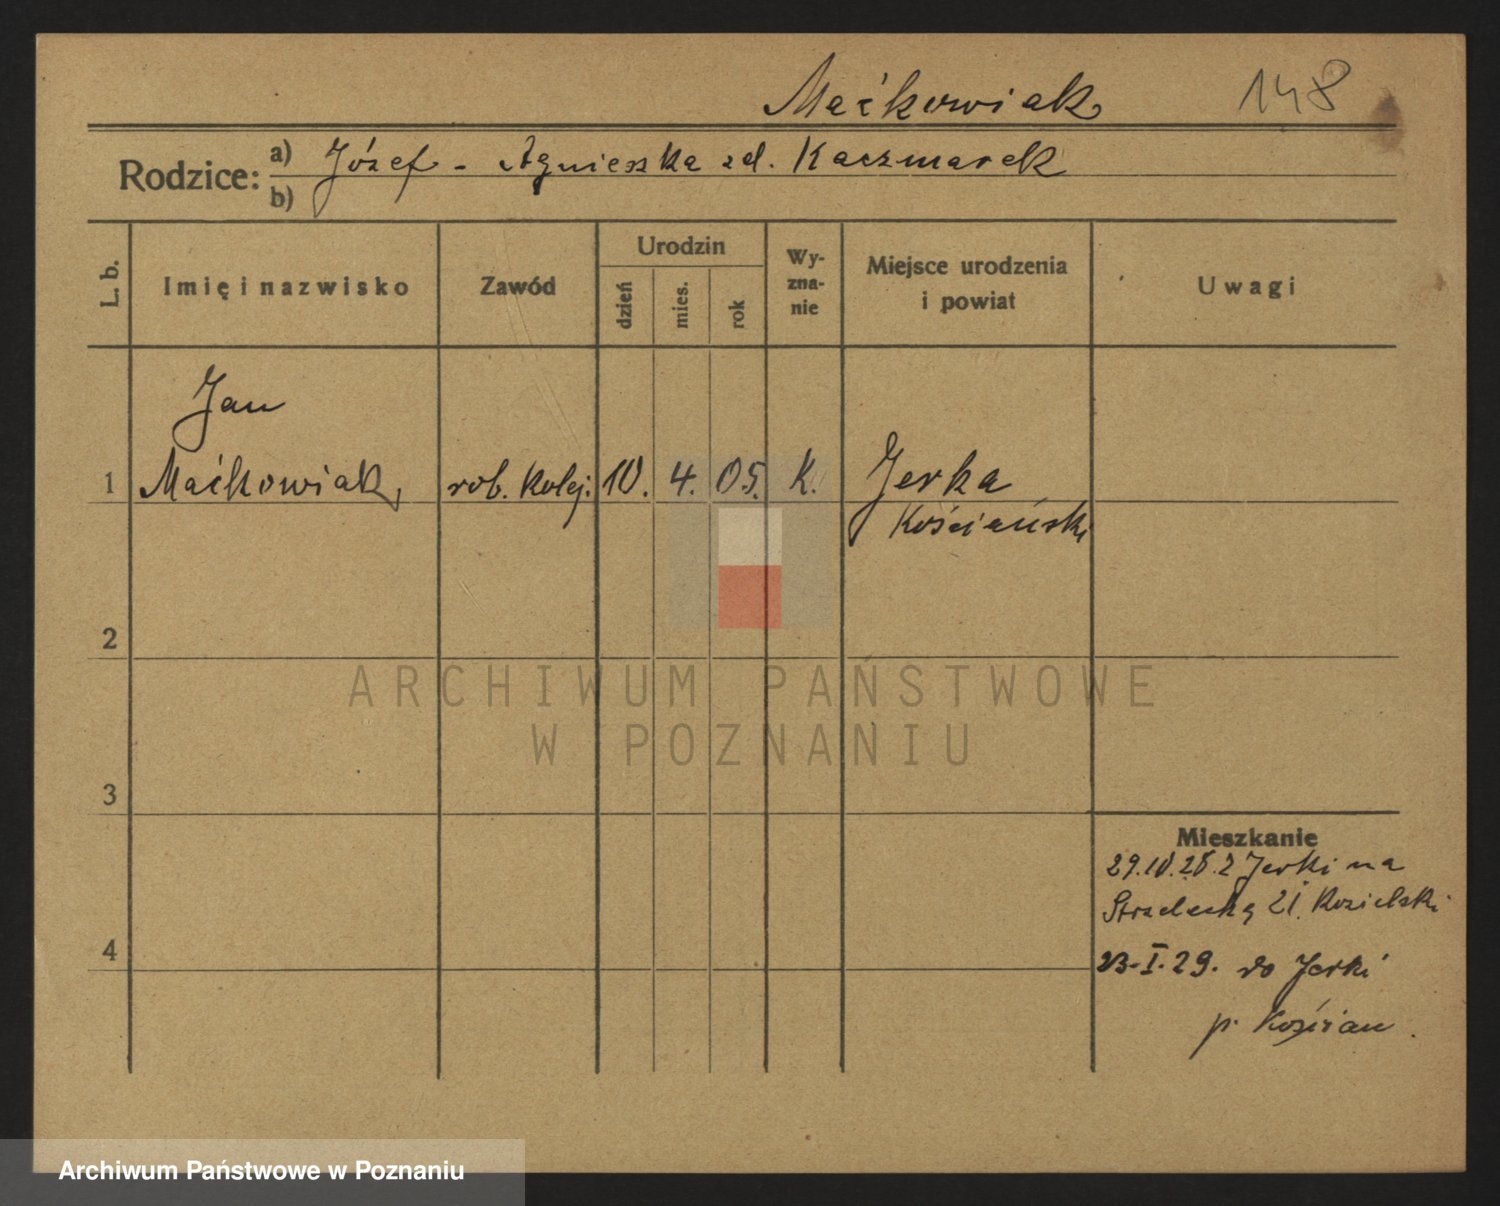 Maćkowiak 148
Rodzice: a) Józef - Agnieszka zd. Kaczmarek
b)
L. b.
Imię i nazwisko
Zawód
Urodzin
dzień
mies.
rok
Wy-
zna-
nie
Miejsce urodzenia
i powiat
Uwagi
Jan
1 Maćkowiak, rob. kolej. 10. 4. 05. K. Jerka
Kościański
2
3
4
ARCHIWUM PAŃSTWOWE
W POZNANIU
Mieszkanie
29.10.28. z Jerki na
Strzelecką 21. Kozielski
23-I.29. do Jerki
p. Kościan.
Archiwum Państwowe w Poznaniu